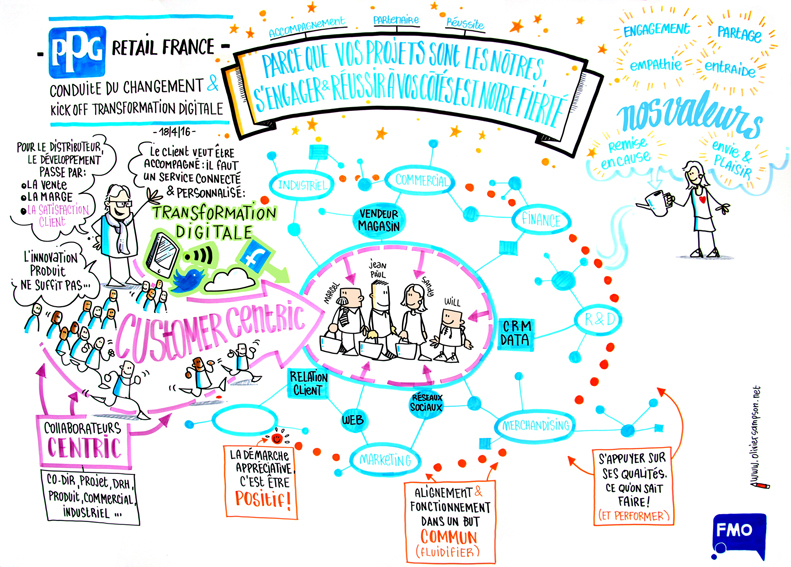 PPG
RETAIL FRANCE
CONDUITE DU CHANGEMENT &
KICK OFF TRANSFORMATION DIGITALE
-18/4/16-
ACCOMPAGNEMENT
PARTENAIRE
Réussite
PARCE QUE VOS PROJETS SONT LES NÔTRES,
S'ENGAGER & RÉUSSIR À VOS CÔTÉS EST NOTRE FIERTÉ
ENGAGEMENT
PARTAGE
empathie
entraide
nos valeurs
Remise
en cause
envie &
PLAISIR
POUR LE DISTRIBUTEUR
LE DÉVELOPPEMENT
PASSE PAR:
LA VENTE
LA MARGE
LA SATISFACTION
CLIENT
Le CLIENT VEUT ÊTRE
ACCOMPAGNÉ: IL FAUT
UN SERVICE CONNECTÉ
& PERSONNALISÉ:
TRANSFORMATION
DIGITALE
f
L'INNOVATION
PRODUIT
NE SUFFIT PAS...
CUSTOMER CENTRIC
INDUSTRIEL
COMMERCIAL
VENDEUR
MAGASIN
FINANCE
MARCEL
Jean
PAUL
SANDY
WILL
CRM
DATA
R&D
RELATION
CLIENT
WEB
RÉSEAUX
SOCIAUX
MERCHANDISING
MARKETING
COLLABORATEURS
CENTRIC
CO-DIR, PROJET, DRH,
PRODUIT, COMMERCIAL,
INDUSTRIEL ...
LA DÉMARCHE
APPRECIATIVE,
C'EST ÊTRE
POSITIF!
ALIGNEMENT &
FONCTIONNEMENT
DANS UN BUT
COMMUN
(FLUIDIFIER)
S'APPUYER SUR
SES QUALITÉS,
CE QU'ON SAIT
FAIRE!
(ET PERFORMER)
www.oliviersampson.net
FMO